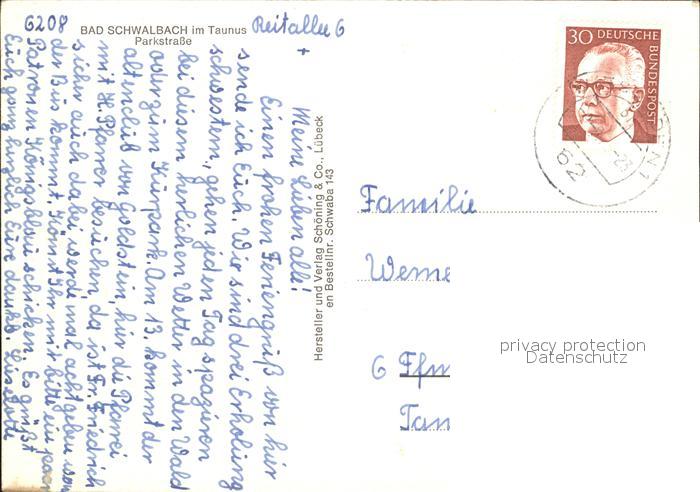 6208
BAD SCHWALBACH im Taunus
Parkstraße
Reitallee 6
+
Meine Lieben alle!
Einen frohen Feriengruß von hier
sende ich Euch. Wir sind drei Erholung
schwestern, gehen jeden Tag spazieren
bei diesem herlichen Wetter in den Wald
oder zum Kurpark. Am 13. kommt der
altenclub von Goldstein, hier die Pfarrei
mit H. Pfarrer besuchen, da ist Fr. Friedrich
sicher auch dabei werde mal acht geben wan
der Bus kommt. Könnt Ihr mir bitte ein paar
Patronen Königsblau schicken. Es grüßt
Euch ganz herzlich Eure dankb. Liselotte
Hersteller und Verlag Schöning & Co., Lübeck
en Bestellnr. Schwaba 143
30 DEUTSCHE
BUNDESPOST
62
DEN 1
Familie
Werne
6 Ffm
Tan
privacy protection
Datenschutz